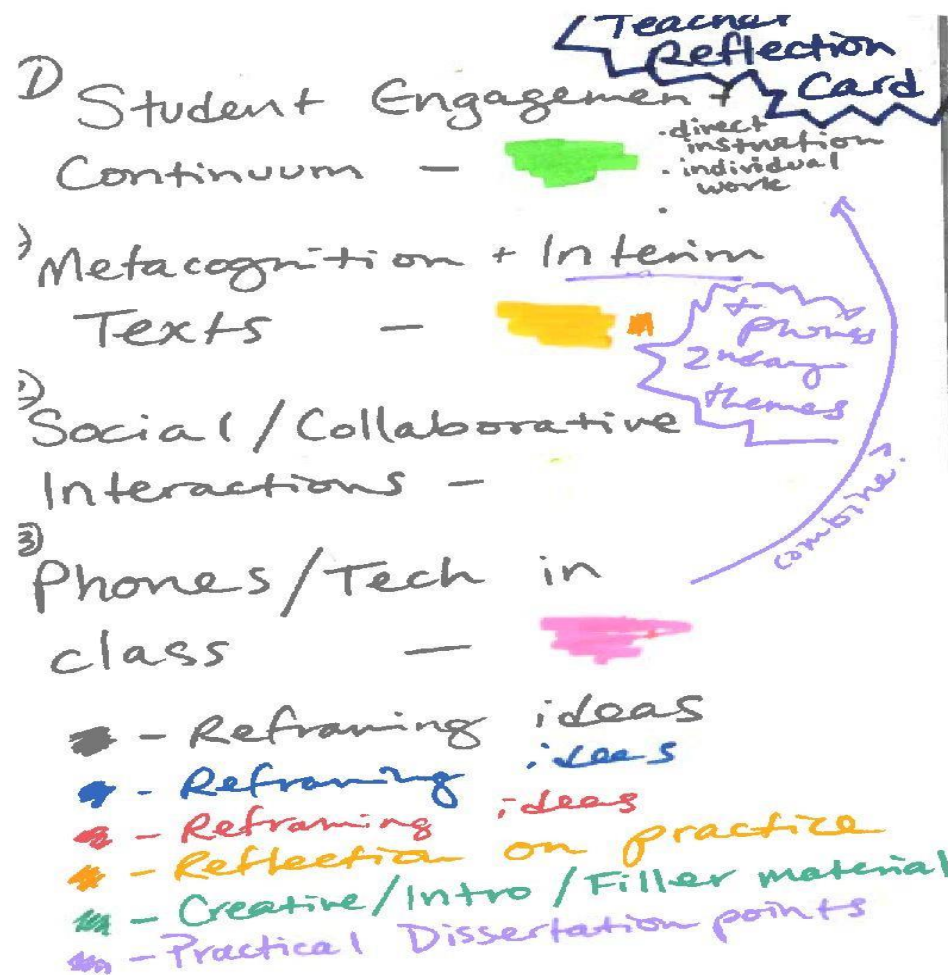 Teacher
Reflection
Card
1) Student Engagement
Continuum –
· direct
instruction
· individual
work
·
Metacognition + Interim
Texts –
+ phones
2ndary
themes
Social/Collaborative
Interactions –
combine?
3) Phones/Tech in
class –
– Reframing ideas
– Reframing ideas
– Reframing ideas
– Reflection on practice
– Creative/Intro/Filler material
– Practical Dissertation points